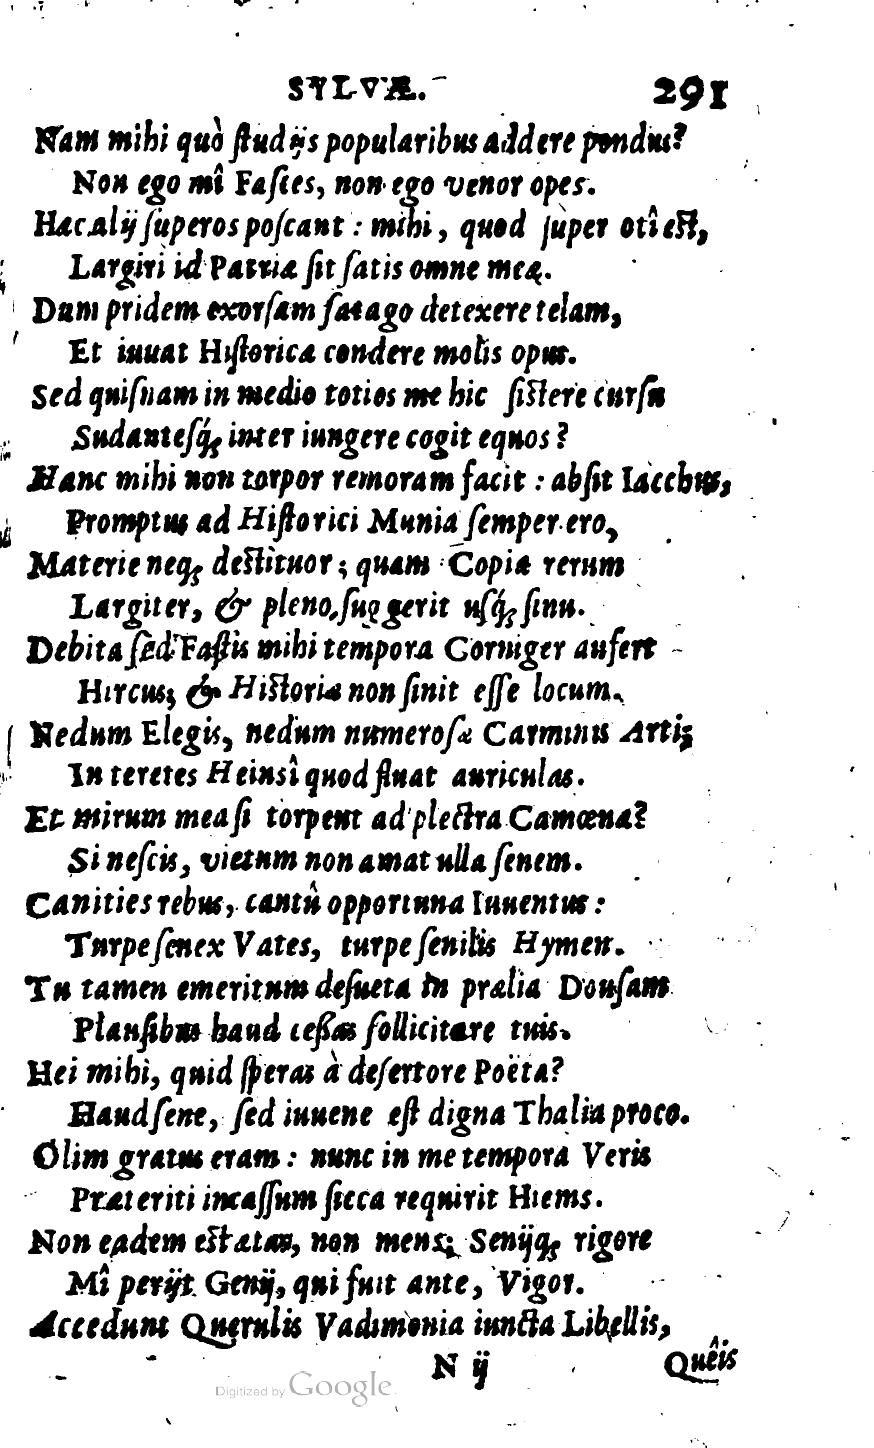 SYLVÆ. 291
Nam mihi quò ſtudijs popularibus addere pondus?
Non ego mî Faſces, non ego venor opes.
Hac alij ſuperos poſcant : mihi, quod ſuper otî eſt,
Largiri id Patriæ ſit ſatis omne meę.
Dum pridem exorſam ſatago detexere telam,
Et iuuat Hiſtorica condere molis opus.
Sed quiſnam in medio toties me hic ſiſtere curſu
Sudanteſq́ꝫ inter iungere cogit equos?
Hanc mihi non torpor remoram facit : abſit Iacchus,
Promptus ad Hiſtorici Munia ſemper ero,
Materie neqꝫ deſtituor; quam Copia rerum
Largiter, & pleno, ſuggerit uſq́ꝫ ſinu.
Debita ſed Faſtis mihi tempora Corniger aufert
Hircus; & Hiſtoriæ non ſinit eſſe locum.
Nedum Elegis, nedum numeroſæ Carminis Arti;
In teretes Heinsî quod fluat auriculas.
Et mirum mea ſi torpent ad plectra Camœna?
Si neſcis, vietum non amat ulla ſenem.
Canities rebus, cantû opportuna Iuuentus :
Turpe ſenex Vates, turpe ſenilis Hymen.
Tu tamen emeritum deſueta in prælia Douſam
Plauſibus haud ceſſas ſollicitare tuis.
Hei mihi, quid ſperas à deſertore Poëta?
Haud ſene, ſed iuuene eſt digna Thalia proco.
Olim gratus eram : nunc in me tempora Veris
Præteriti incaſſum ſicca requirit Hiems.
Non eadem eſt ætas, non mens; Senijqꝫ rigore
Mî perijt Genij, qui fuit ante, Vigor.
Accedunt Querulis Vadimonia iuncta Libellis,
N ij Quêis
Digitized by Google